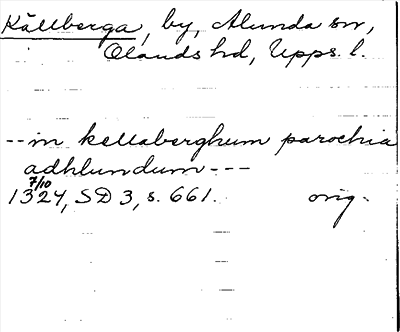 Källberga, by, Alunda sn,
Olands hd, Upps. l.
-- in kellaberghum parochia
adhlundum ---
7/10
1324, SD 3, s. 661. orig.